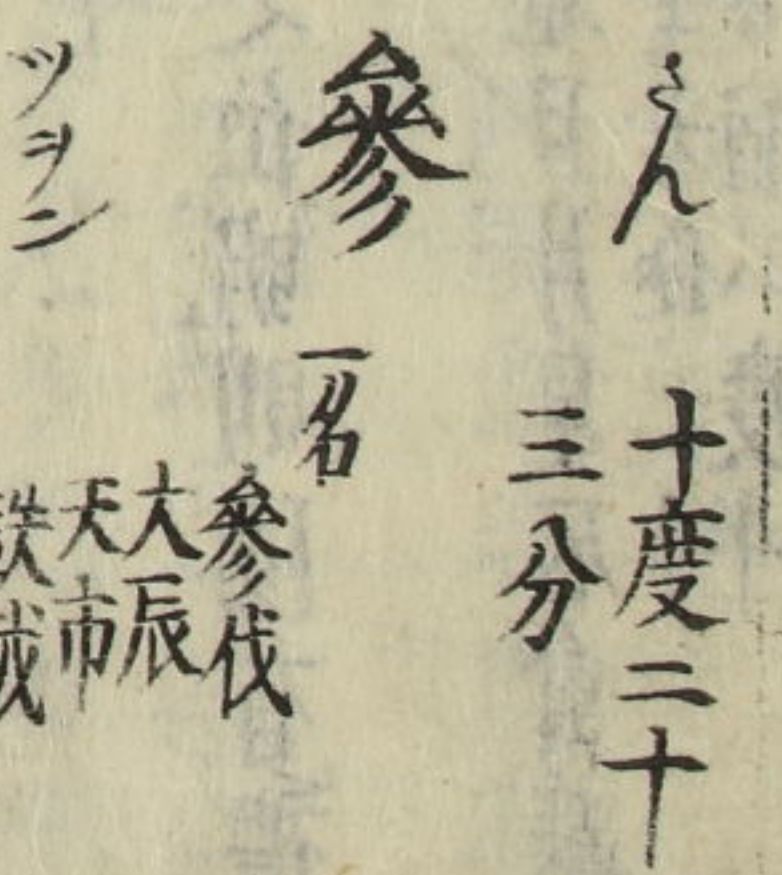 さん
十度二十
三分
參
一名
參伐
大辰
天市
鈇鉞
ツヲン